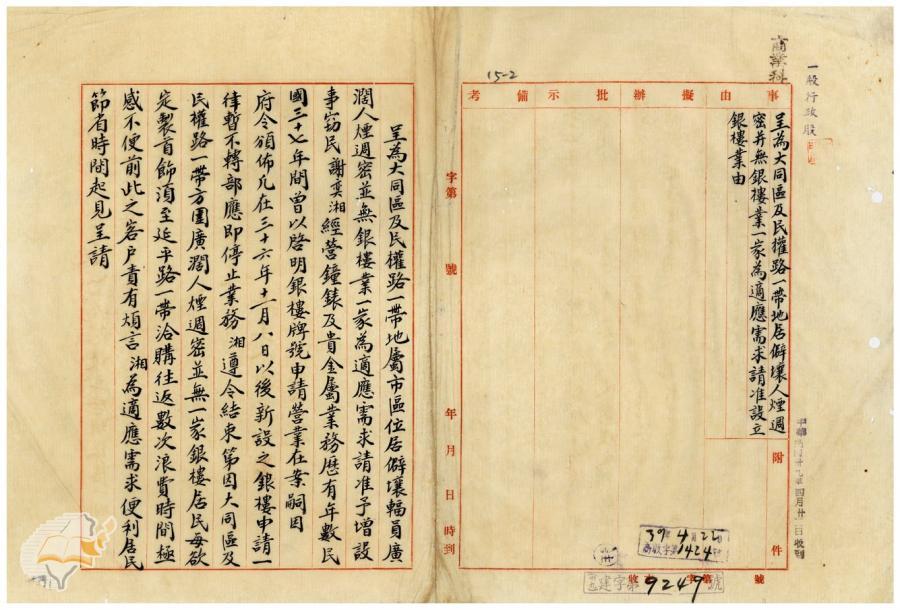 商業科
一般行政股
15-2
事由
擬辦
批示
備考
呈為大同區及民權路一帶地居僻壤人煙週
密并無銀樓業一家為適應需求請准設立
銀樓業由
附件
中華民國卅九年四月廿二日收到
39年4月22日
商收字第1424號
收建字第9249號
字第 號
年 月 日 時到
呈為大同區及民權路一帶地屬市區位居僻壤輻員廣
濶人煙週密並無銀樓業一家為適應需求請准予增設
事窃民謝奕湘經營鐘錶及貴金屬業務歷有年數民
國三十七年間曾以啓明銀樓牌號申請營業在案嗣因
府令頒佈凡在三十六年十二月八日以後新設之銀樓申請一
律暫不轉部應即停止業務湘遵令結束第因大同區及
民權路一帶方圍廣濶人煙週密並無一家銀樓居民每欲
定製首飾須至延平路一帶洽購往返數次浪費時間極
感不便前此之客戶責有煩言湘為適應需求便利居民
節省時間起見呈請